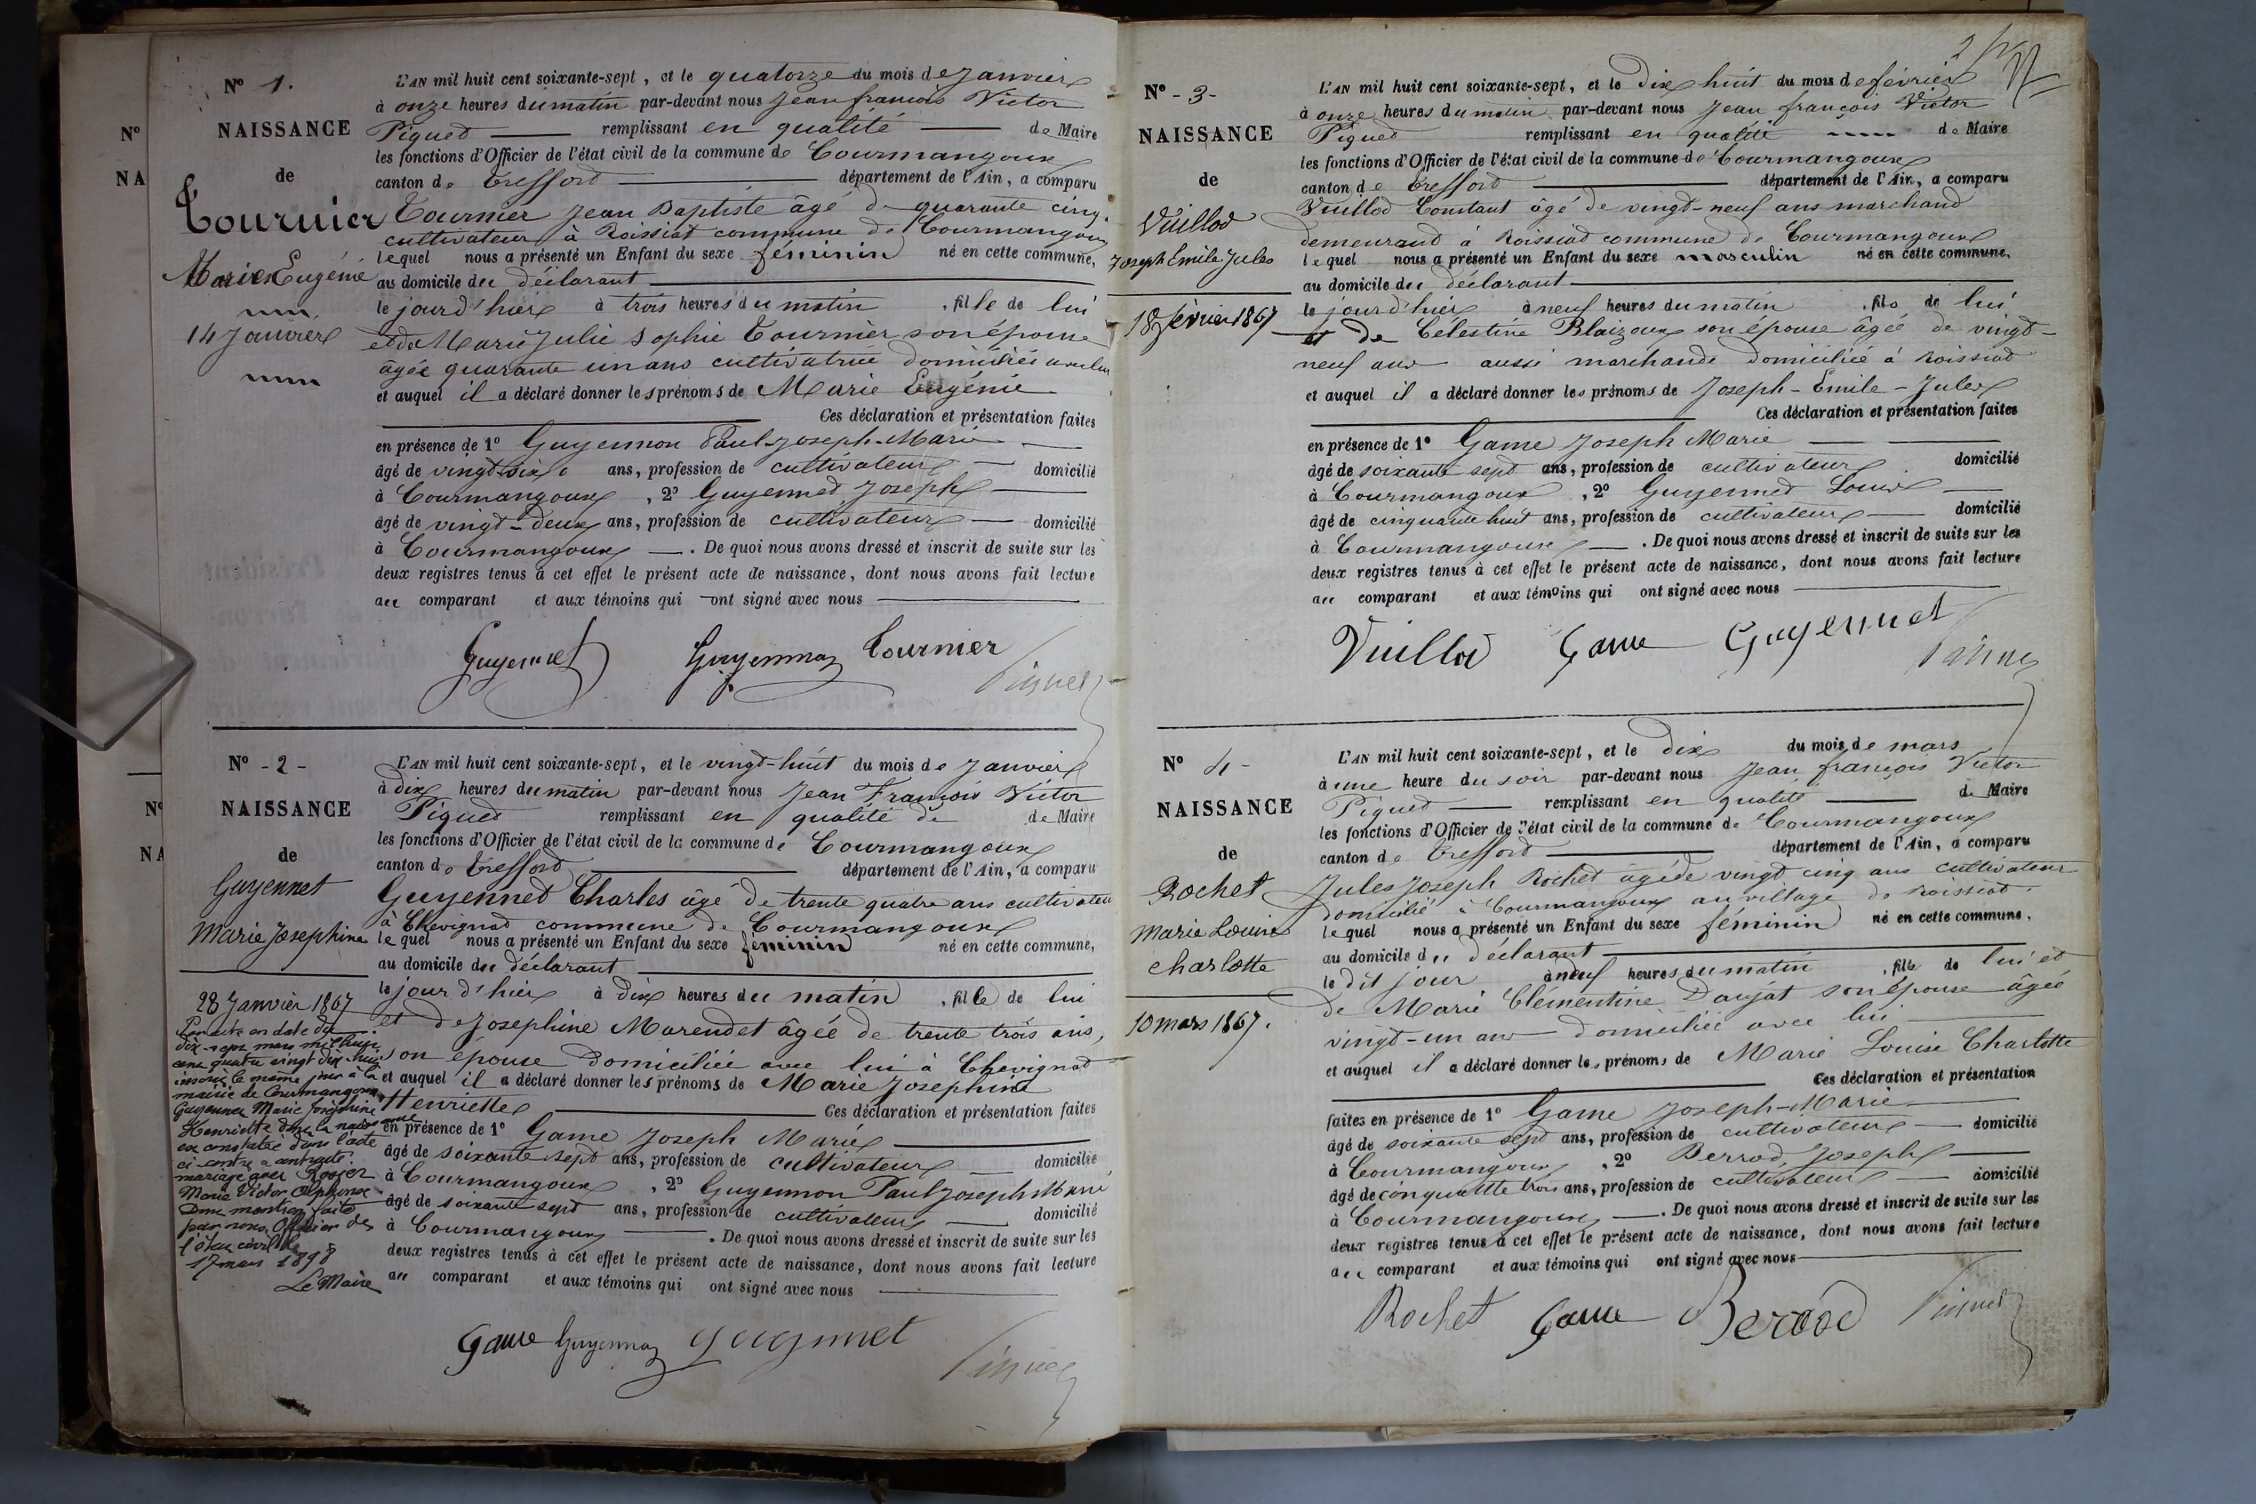 N°
NA
N° 1.
NAISSANCE
de
Tournier
Marie Eugénie
14 Janvier
L'AN mil huit cent soixante-sept, et le quatorze du mois de Janvier
à onze heures du matin par-devant nous Jean francois Victor
Piquet remplissant en qualité de Maire
les fonctions d'Officier de l'état civil de la commune de Courmangoux
canton de Treffort département de l'Ain, a comparu
Tournier Jean Baptiste âgé de quarante cinq
cultivateur à Roissiat commune de Courmangoux
lequel nous a présenté un Enfant du sexe féminin né en cette commune,
au domicile du déclarant
le jour d'hier à trois heures du matin, fille de lui
et de Marie Julie Sophie Tournier son épouse
âgée quarante un ans cultivatrice domiciliée
et auquel il a déclaré donner les prénoms de Marie Eugénie
Ces déclaration et présentation faites
en présence de 1° Guyennon Paul-Joseph-Marie
âgé de vingt-six ans, profession de cultivateur domicilié
à Courmangoux, 2° Guyennet Joseph
âgé de vingt-deux ans, profession de cultivateur domicilié
à Courmangoux. De quoi nous avons dressé et inscrit de suite sur les
deux registres tenus à cet effet le présent acte de naissance, dont nous avons fait lecture
au comparant et aux témoins qui ont signé avec nous
Guyennet Guyennon Tournier Piquet
N°
NA
N° - 2 -
NAISSANCE
de
Guyennet
Marie Josephine
28 Janvier 1867
Par acte en date du
dix-sept mars mil huit
cent quatre vingt dix-huit
inscrit le même jour à la
mairie de Courmangoux
Guyennet Marie Joséphine
Henriette dont la naissance
est constatée dans l'acte
ci-contre a contracté
mariage avec Rozier
Marie Victor Alphonse
Dont mention faite
par nous, Officier de
l'état civil le
17 mars 1898
Le Maire
L'AN mil huit cent soixante-sept, et le vingt-huit du mois de Janvier
à dix heures du matin par-devant nous Jean François Victor
Piquet remplissant en qualité de de Maire
les fonctions d'Officier de l'état civil de la commune de Courmangoux
canton de Treffort département de l'Ain, a comparu
Guyennet Charles âgé de trente quatre ans cultivateur
à Chevignat commune de Courmangoux
lequel nous a présenté un Enfant du sexe féminin né en cette commune,
au domicile du déclarant
le jour d'hier à dix heures du matin, fille de lui
et de Josephine Marendet âgée de trente trois ans,
son épouse domiciliée avec lui à Chevignat
et auquel il a déclaré donner les prénoms de Marie Josephine
Henriette Ces déclaration et présentation faites
en présence de 1° Game Joseph Marie
âgé de soixante sept ans, profession de cultivateur domicilié
à Courmangoux, 2° Guyennon Paul Joseph Marie
âgé de soixante sept ans, profession de cultivateur domicilié
à Courmangoux. De quoi nous avons dressé et inscrit de suite sur les
deux registres tenus à cet effet le présent acte de naissance, dont nous avons fait lecture
au comparant et aux témoins qui ont signé avec nous
Game Guyennon Guyennet Piquet
2
N° - 3 -
NAISSANCE
de
Vuillod
Joseph Emile Jules
18 février 1867
L'AN mil huit cent soixante-sept, et le Dix huit du mois de février
à onze heures du matin par-devant nous Jean françois Victor
Piquet remplissant en qualité de Maire
les fonctions d'Officier de l'état civil de la commune de Courmangoux
canton de Treffort département de l'Ain, a comparu
Vuillod Constant âgé de vingt-neuf ans marchand
demeurand à Roissiat commune de Courmangoux
lequel nous a présenté un Enfant du sexe masculin né en cette commune,
au domicile du déclarant
le jour d'hier à neuf heures du matin, fils de lui
et de Célestine Blaizoux son épouse âgée de vingt-
neuf ans aussi marchande domiciliée à Roissiat
et auquel il a déclaré donner les prénoms de Joseph-Emile-Jules
Ces déclaration et présentation faites
en présence de 1° Game Joseph Marie
âgé de soixante sept ans, profession de cultivateur domicilié
à Courmangoux, 2° Guyennet Louis
âgé de cinquante huit ans, profession de cultivateur domicilié
à Courmangoux. De quoi nous avons dressé et inscrit de suite sur les
deux registres tenus à cet effet le présent acte de naissance, dont nous avons fait lecture
au comparant et aux témoins qui ont signé avec nous
Vuillod Game Guyennet Piquet
N° 4 -
NAISSANCE
de
Rochet
Marie Louise
Charlotte
10 mars 1867.
L'AN mil huit cent soixante-sept, et le dix du mois de mars
à une heure du soir par-devant nous Jean françois Victor
Piquet remplissant en qualité de Maire
les fonctions d'Officier de l'état civil de la commune de Courmangoux
canton de Treffort département de l'Ain, a comparu
Jules Joseph Rochet âgé de vingt cinq ans cultivateur
domicilié à Courmangoux au village de Roissiat
lequel nous a présenté un Enfant du sexe féminin né en cette commune,
au domicile du déclarant
le dit jour à neuf heures du matin, fille de lui et
de Marie Clémentine Daujat son épouse âgée
vingt-un ans domiciliée avec lui
et auquel il a déclaré donner les prénoms de Marie Louise Charlotte
Ces déclaration et présentation
faites en présence de 1° Game Joseph-Marie
âgé de soixante sept ans, profession de cultivateur domicilié
à Courmangoux, 2° Berrod Joseph
âgé de cinquante trois ans, profession de cultivateur domicilié
à Courmangoux. De quoi nous avons dressé et inscrit de suite sur les
deux registres tenus à cet effet le présent acte de naissance, dont nous avons fait lecture
au comparant et aux témoins qui ont signé avec nous
Rochet Game Berrod Piquet